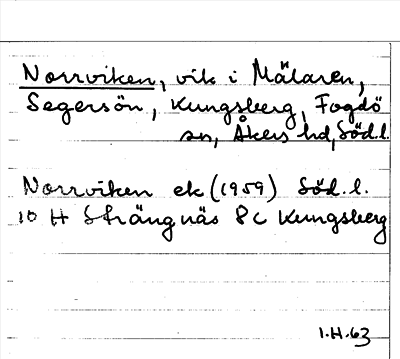 Norrviken, vik i Mälaren,
Segersön, Kungsberg, Fogdö
sn, Åkers hd, Söd.l.
Norrviken ek (1959) Söd.l.
10 H Strängnäs 8 c Kungsberg
1.H.63